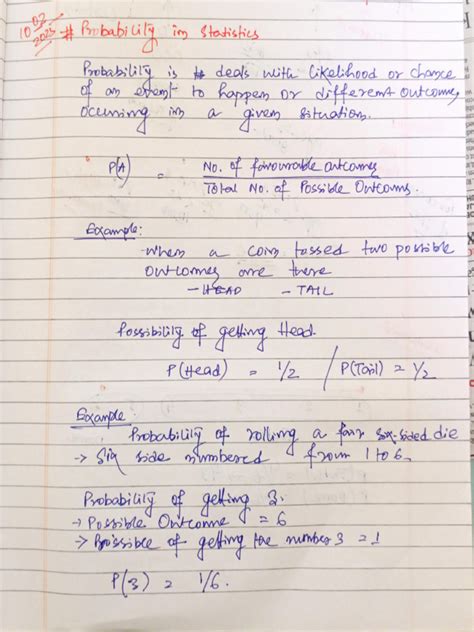 10.02.2025
# Probability in Statistics
Probability is deals with likelihood or chance
of an event to happen or different outcomes
occuring in a given situation.
P(A) = No. of favourable outcomes
Total No. of Possible Outcoms.
Example:
-when a coin tossed two possible
outcomes are there
- HEAD - TAIL
Possibility of getting Head.
P(Head) = 1/2 / P(Tail) = 1/2
Example
Probability of rolling a fair six-sided die
→ Six side numbered from 1 to 6.
Probability of getting 3.
→ Possible Outcome = 6
→ Possible of getting the number 3 = 1
P(3) = 1/6.